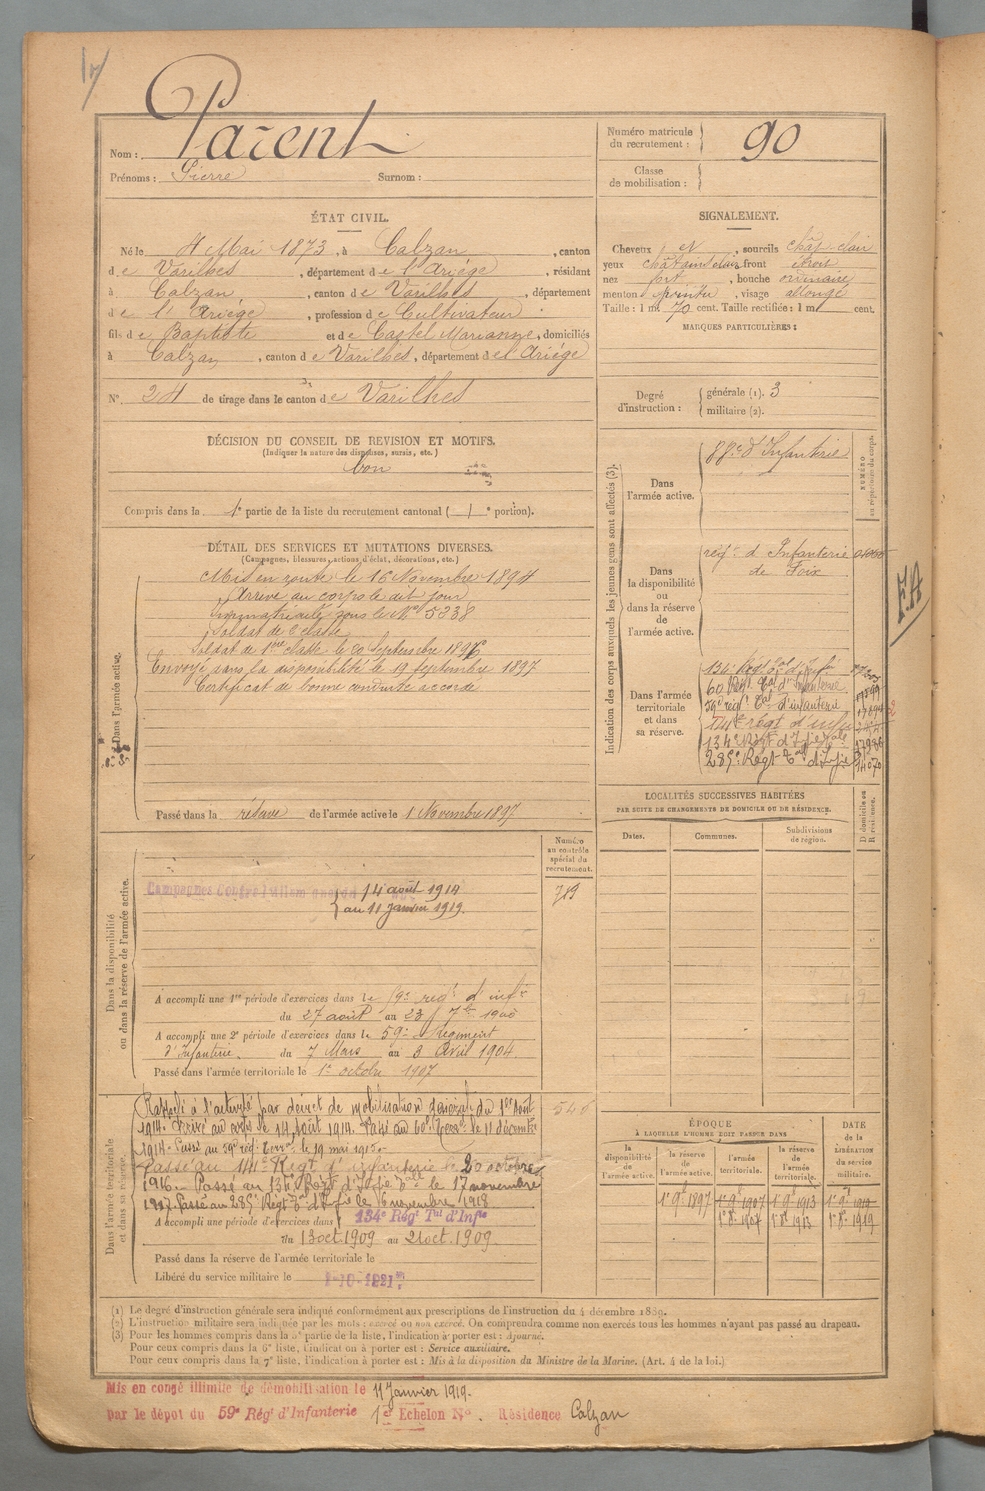 Nom : Parent
Prénoms : Pierre Surnom :
Numéro matricule du recrutement : 90
Classe de mobilisation :
ÉTAT CIVIL.
Né le 4 Mai 1873, à Calzan, canton
de Varilhes, département de l'Ariége, résidant
à Calzan, canton de Varilhes, département
de l'Ariége, profession de Cultivateur
fils de Baptiste et de Castel Marianne, domiciliés
à Calzan, canton de Varilhes, département de l'Ariége
N° 24 de tirage dans le canton de Varilhes
SIGNALEMENT.
Cheveux , sourcils chât-clair
yeux châtain clair front étroit
nez fort, bouche ordinaire
menton pointu, visage allongé
Taille : 1 m. 70 cent. Taille rectifiée : 1 m. cent.
MARQUES PARTICULIÈRES :
Degré d'instruction :
générale (1). 3
militaire (2).
DÉCISION DU CONSEIL DE REVISION ET MOTIFS.
(Indiquer la nature des dispenses, sursis, etc.)
bon
Compris dans la 1e partie de la liste du recrutement cantonal (1e portion).
DÉTAIL DES SERVICES ET MUTATIONS DIVERSES.
(Campagnes, blessures, actions d'éclat, décorations, etc.)
Dans l'armée active.
Mis en route le 16 Novembre 1894
Arrivé au corps le dit jour
Immatriculé sous le N° 5338
Soldat de 2e classe
Soldat de 1ère classe le 20 Septembre 1896
Envoyé dans la disponibilité le 19 Septembre 1897
Certificat de bonne conduite accordé
Passé dans la réserve de l'armée active le 1 Novembre 1897
Indication des corps auxquels les jeunes gens sont affectés (3).
NUMÉRO au répertoire du corps.
Dans l'armée active.
88e d'Infanterie
Dans la disponibilité ou dans la réserve de l'armée active.
régt d'Infanterie
de Foix
Dans l'armée territoriale et dans sa réserve.
134e Régt Tal d'Infie
60 Régt Tal d'Infanterie
59e régt Tal d'infanterie
144e régt d'infie
134e Régt d'Infie Tale
285e Régt Tal d'Infie 14070
LOCALITÉS SUCCESSIVES HABITÉES
PAR SUITE DE CHANGEMENTS DE DOMICILE OU DE RÉSIDENCE.
Dates. Communes. Subdivisions de région. D domicile ou R résidence.
F.A
Dans la disponibilité ou dans la réserve de l'armée active.
Numéro au contrôle spécial du recrutement.
719
Campagnes Contre l'Allemagne du 14 août 1914
au 11 janvier 1919.
A accompli une 1re période d'exercices dans le 59e régt d'infie
du 27 août au 23 7bre 1900
A accompli une 2e période d'exercices dans le 59e régiment
d'Infanterie. du 7 Mars au 3 Avril 1904
Passé dans l'armée territoriale le 1er octobre 1907
Dans l'armée territoriale et dans sa réserve.
Rappelé à l'activité par décret de mobilisation générale du 1er Août
1914. Arrivé au corps le 14 Août 1914. Passé au 60e Terral le 11 décembre
1914. Passé au 59e régt Terral le 19 mai 1915.
Passé au 144e Régt d'infanterie le 20 octobre
1916. Passé au 134e Régt d'Infie Tale le 17 novembre
1917. Passé au 285e Régt Tal d'Infie le 6 novembre 1918
A accompli une période d'exercices dans 134e Régt Tal d'Infie
du 13 oct. 1909 au 21 oct. 1909
Passé dans la réserve de l'armée territoriale le
Libéré du service militaire le
ÉPOQUE
À LAQUELLE L'HOMME DOIT PASSER DANS
la disponibilité de l'armée active. la réserve de l'armée active. l'armée territoriale. la réserve de l'armée territoriale.
DATE de la LIBÉRATION du service militaire.
1er 9bre 1897 1er 9bre 1907 1er 9bre 1913 1er 9bre 1919
1er 8bre 1907 1er 8bre 1913 1er 8bre 1919
(1) Le degré d'instruction générale sera indiqué conformément aux prescriptions de l'instruction du 4 décembre 1889.
(2) L'instruction militaire sera indiquée par les mots : exercé ou non exercé. On comprendra comme non exercés tous les hommes n'ayant pas passé au drapeau.
(3) Pour les hommes compris dans la 5e partie de la liste, l'indication à porter est : Ajourné.
Pour ceux compris dans la 6e liste, l'indication à porter est : Service auxiliaire.
Pour ceux compris dans la 7e liste, l'indication à porter est : Mis à la disposition du Ministre de la Marine. (Art. 4 de la loi.)
Mis en congé illimité de démobilisation le 11 Janvier 1919.
par le dépôt du 59e Régt d'Infanterie 1er Echelon N° . Résidence Calzan